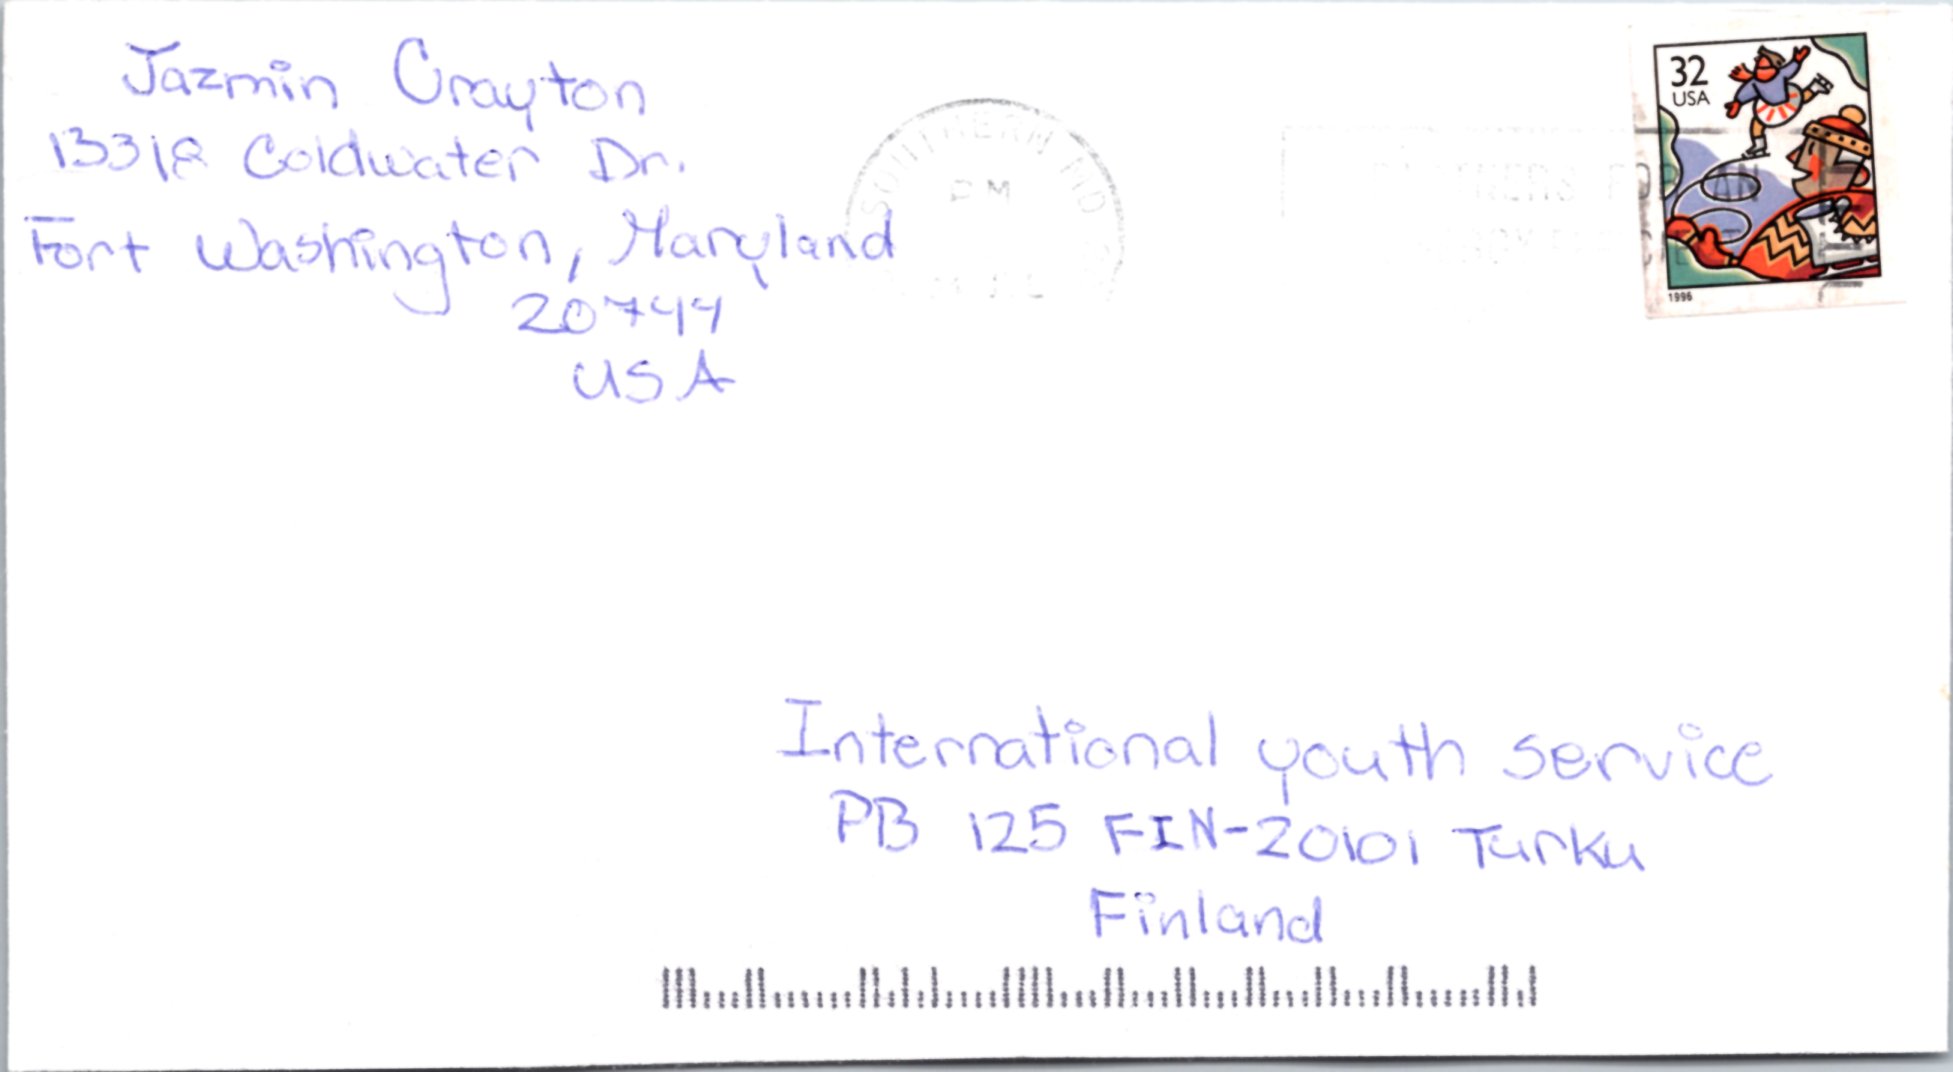 Jazmin Crayton
13318 Coldwater Dr.
Fort Washington, Maryland
20744
USA
SOUTHERN MD
PM
32
USA
1996
International youth service
PB 125 FIN-20101 Turku
Finland